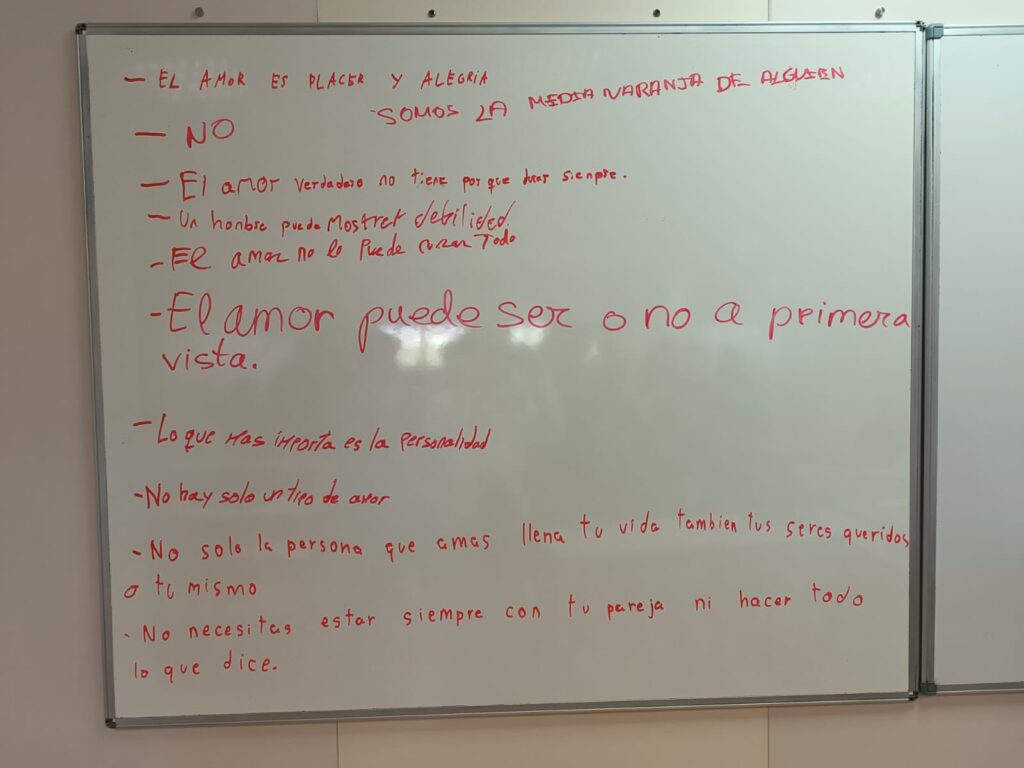 - EL AMOR ES PLACER Y ALEGRIA
- SOMOS LA MEDIA NARANJA DE ALGUIEN
- NO
- El amor verdadero no tiene por que durar siempre.
- Un hombre puede Mostrar debilidad.
- El amor no lo Puede curar Todo
- El amor puede ser o no a primera
vista.
- Lo que Mas importa es la personalidad
- No hay solo un tipo de amor
- No solo la persona que amas llena tu vida tambien tus seres queridos
o tu mismo
- No necesitas estar siempre con tu pareja ni hacer todo
lo que dice.